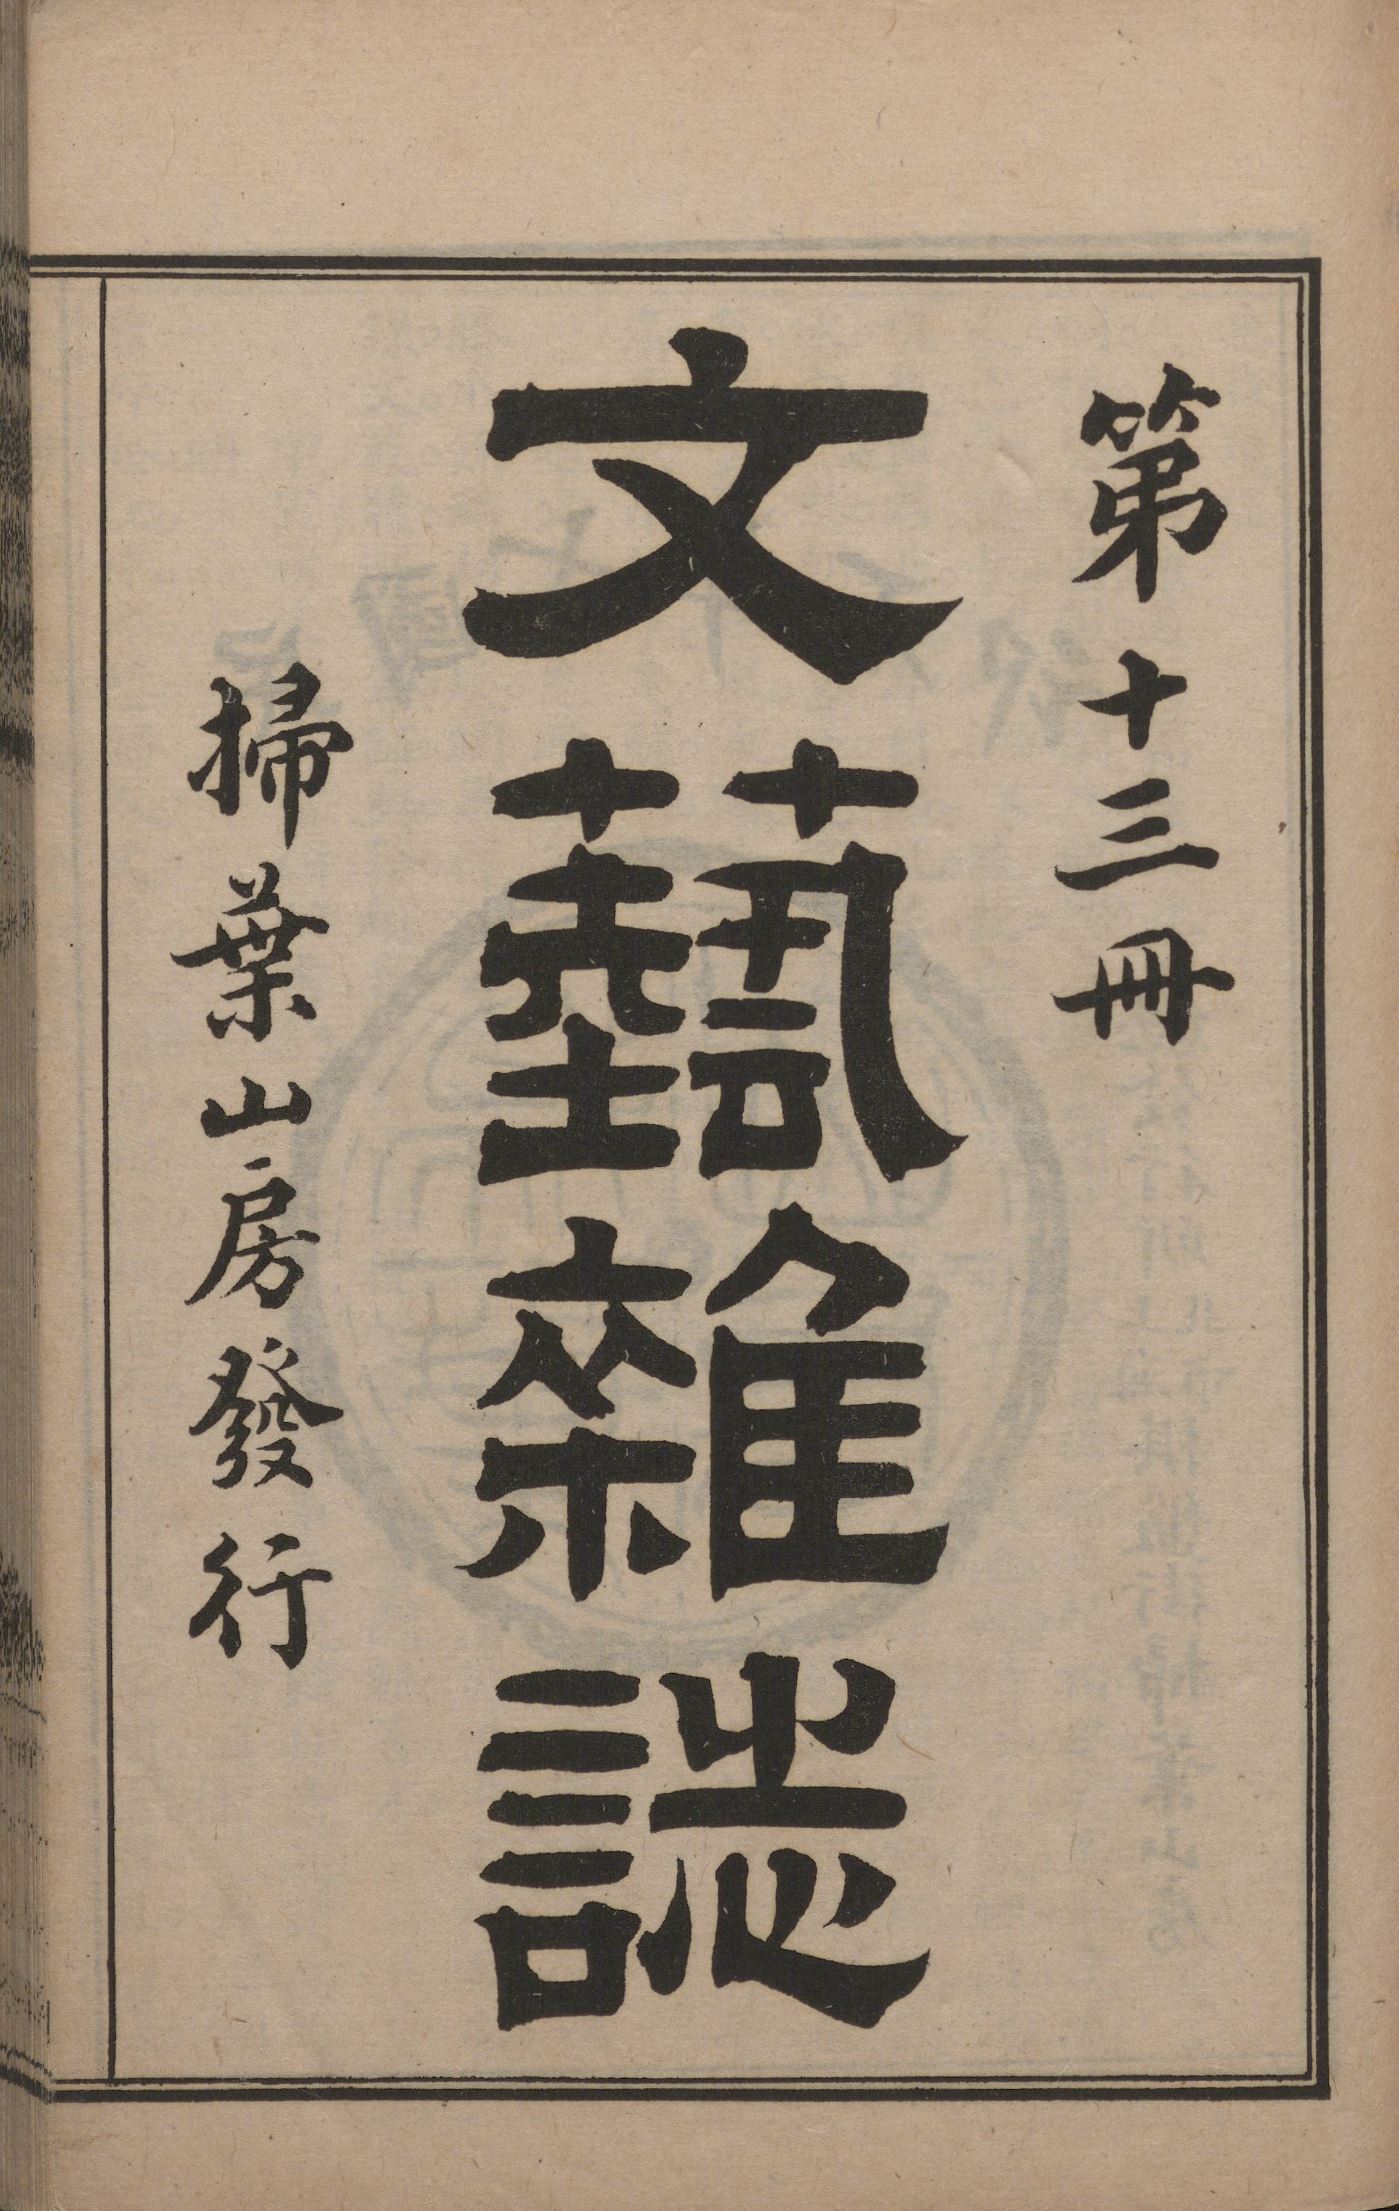 第十三冊
文藝雜誌
掃葉山房發行